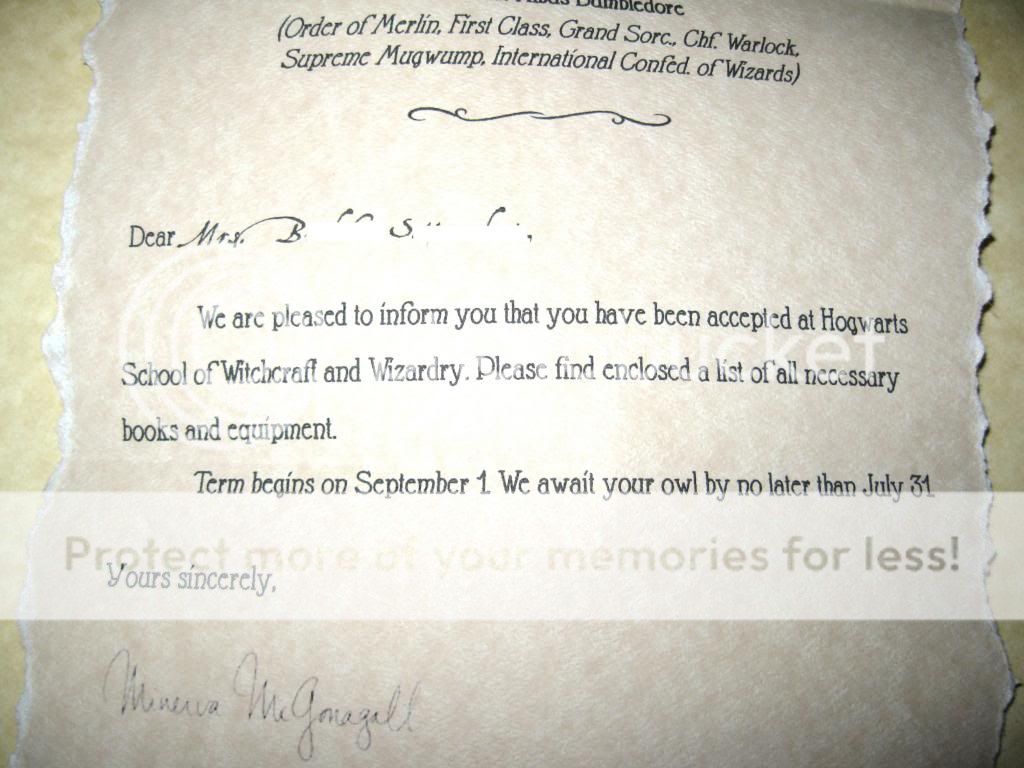 Albus Dumbledore
(Order of Merlin, First Class, Grand Sorc., Chf. Warlock,
Supreme Mugwump, International Confed. of Wizards)
Dear Mrs. B S ,
We are pleased to inform you that you have been accepted at Hogwarts
School of Witchcraft and Wizardry. Please find enclosed a list of all necessary
books and equipment.
Term begins on September 1. We await your owl by no later than July 31
Protect more of your memories for less!
Yours sincerely,
Minerva McGonagall